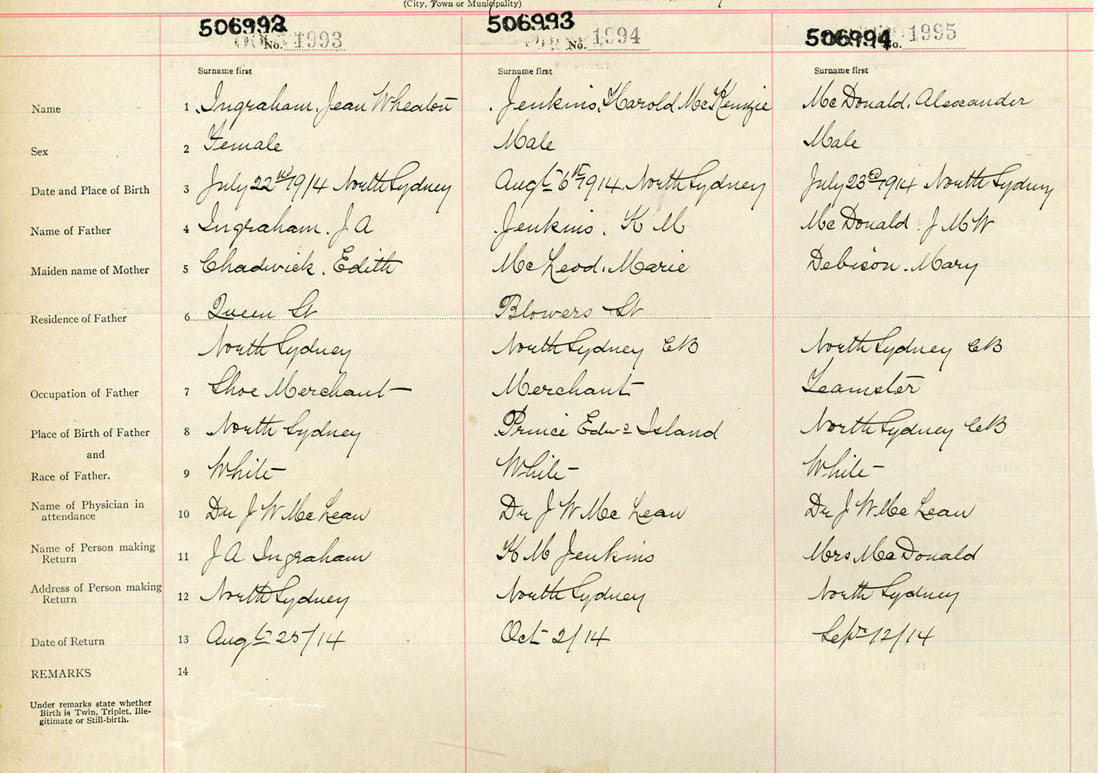 (City, Town or Municipality)
506993 506993 506994
No. 1993 No. 1994 No. 1995
Surname first Surname first Surname first
Name 1 Ingraham, Jean Wheaton Jenkins, Harold McKenzie McDonald, Alexander
Sex 2 Female Male Male
Date and Place of Birth 3 July 22nd 1914 North Sydney Augt 6th 1914, North Sydney July 23rd 1914 North Sydney
Name of Father 4 Ingraham. J A Jenkins. K M McDonald. J M W
Maiden name of Mother 5 Chadwick, Edith McLeod, Marie Debison. Mary
Residence of Father 6 Queen St Blowers St
North Sydney North Sydney CB North Sydney CB
Occupation of Father 7 Shoe Merchant Merchant Teamster
Place of Birth of Father 8 North Sydney Prince Edwd Island North Sydney CB
and
Race of Father. 9 White White White
Name of Physician in
attendance 10 Dr J W McLean Dr J W McLean Dr J W McLean
Name of Person making
Return 11 J A Ingraham K M Jenkins Mrs McDonald
Address of Person making
Return 12 North Sydney North Sydney North Sydney
Date of Return 13 Augt 25/14 Oct 2/14 Septr 12/14
REMARKS 14
Under remarks state whether
Birth is Twin, Triplet, Ille-
gitimate or Still-birth.